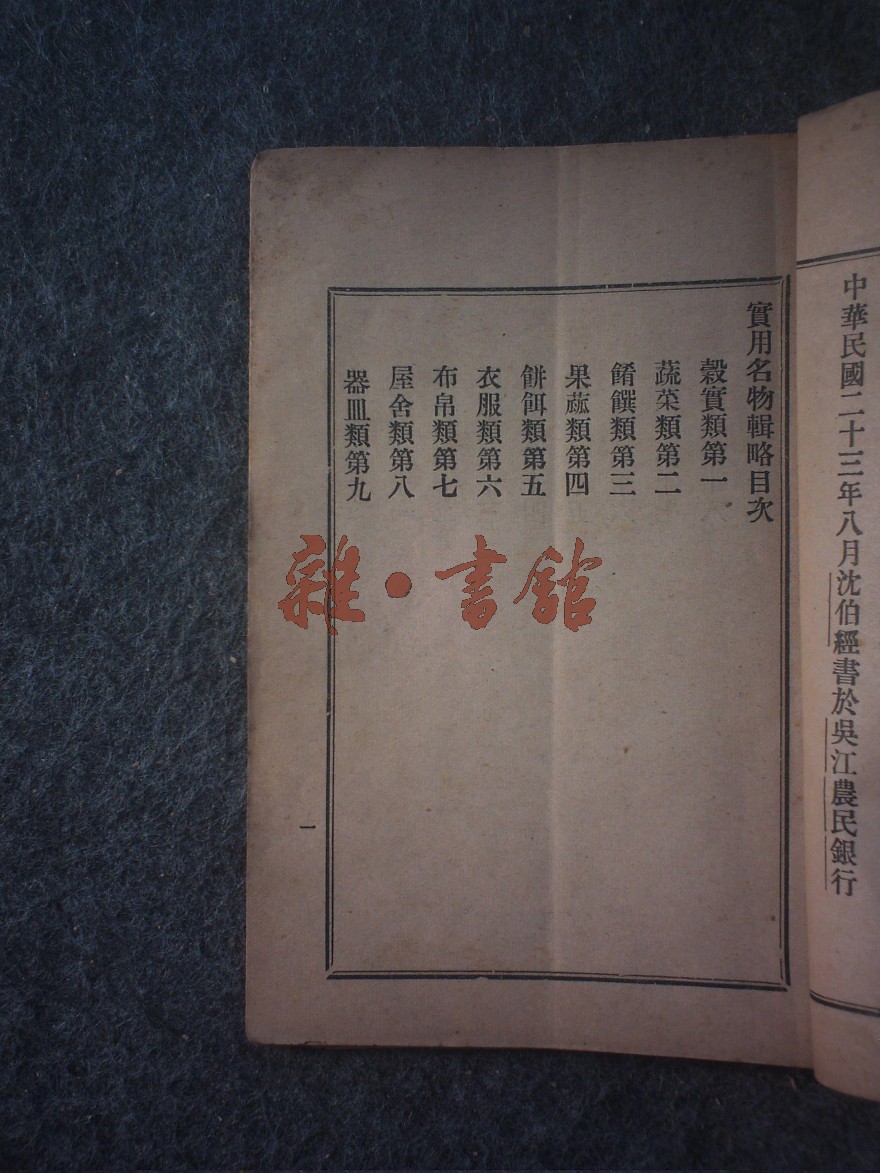 中華民國二十三年八月沈伯經書於吳江農民銀行
實用名物輯略目次
穀實類第一
蔬菜類第二
餚饌類第三
果蓏類第四
餅餌類第五
衣服類第六
布帛類第七
屋舍類第八
器皿類第九
一
雜·書館